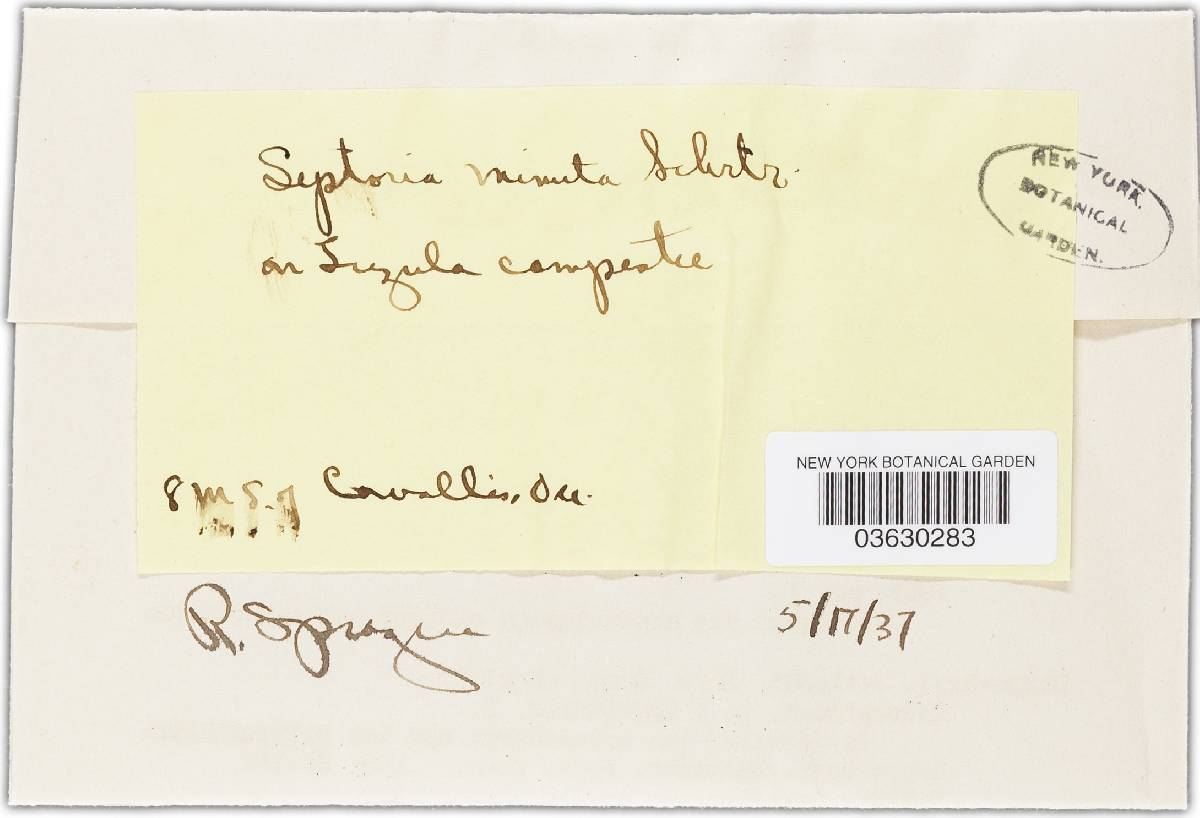 Septoria minuta Schrtr.
on Luzula campestre
NEW YORK
BOTANICAL
GARDEN.
8 m S. of Corvallis, Ore.
NEW YORK BOTANICAL GARDEN
03630283
R. Sprague
5/17/37